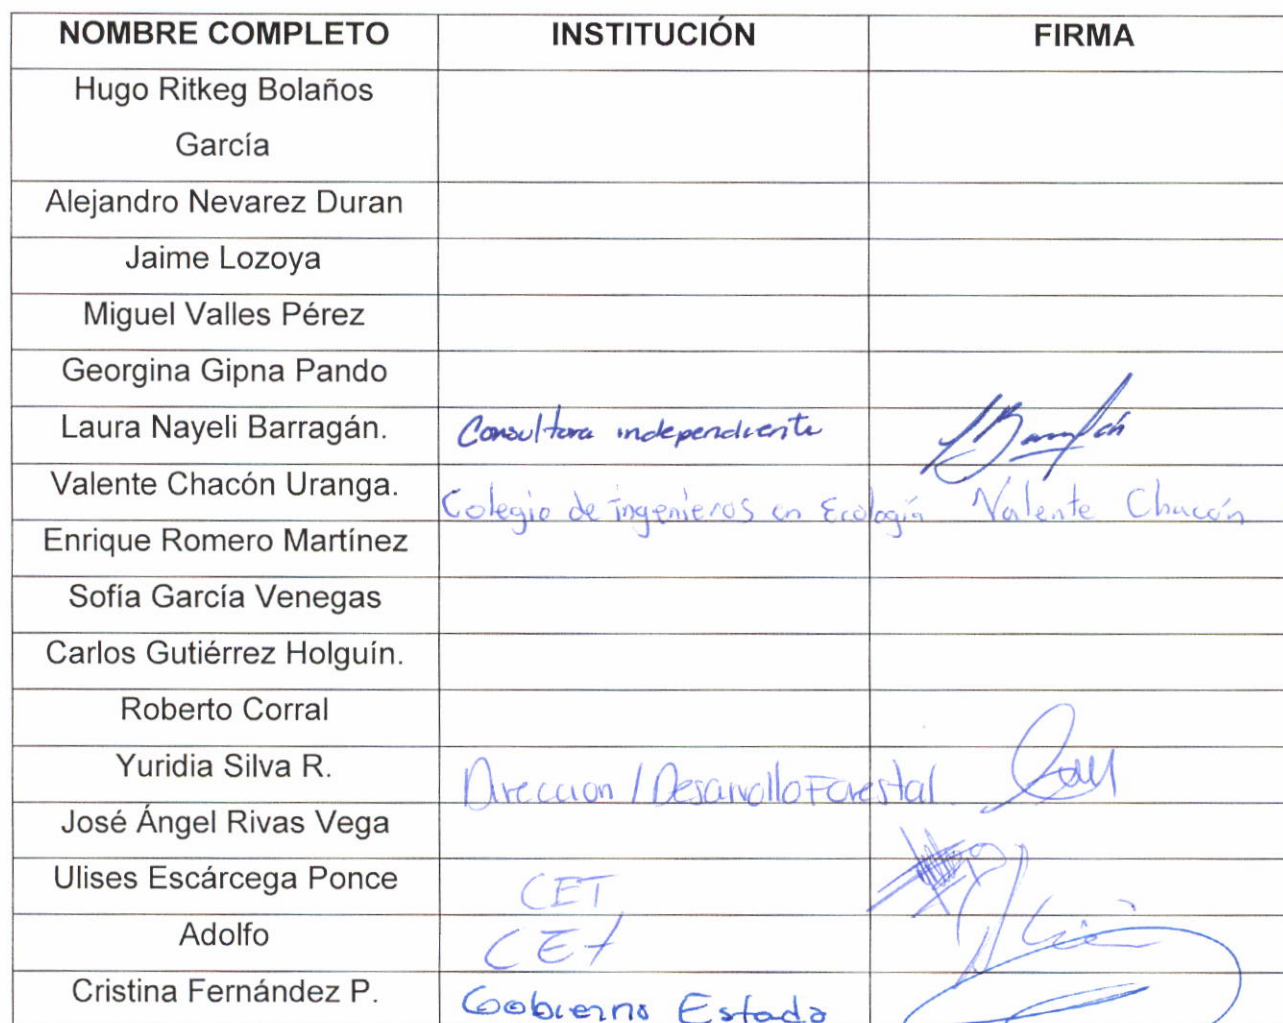 NOMBRE COMPLETO INSTITUCIÓN FIRMA
Hugo Ritkeg Bolaños
García
Alejandro Nevarez Duran
Jaime Lozoya
Miguel Valles Pérez
Georgina Gipna Pando
Laura Nayeli Barragán. Consultora independiente
Valente Chacón Uranga. Colegio de ingenieros en Ecología Valente Chacón
Enrique Romero Martínez
Sofía García Venegas
Carlos Gutiérrez Holguín.
Roberto Corral
Yuridia Silva R. Direccion / Desarrollo Forestal.
José Ángel Rivas Vega
Ulises Escárcega Ponce CET
Adolfo CET
Cristina Fernández P. Gobierno Estado